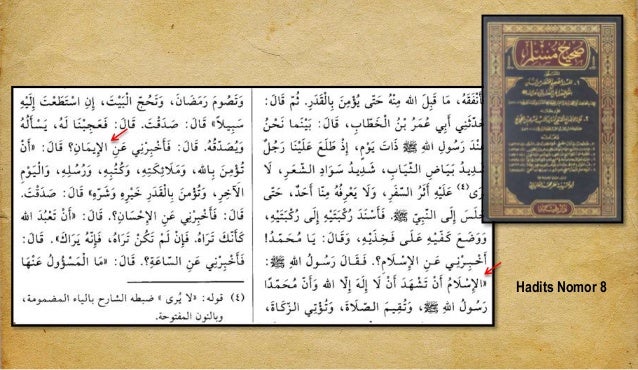 صَحِيح مُسْلِم
أَنْفَقَهُ، مَا قَبِلَ اللهُ مِنْهُ حَتَّى يُؤْمِنَ بِالْقَدَرِ. ثُمَّ قَالَ:
حَدَّثَنِي أَبِي عُمَرُ بْنُ الْخَطَّابِ، قَالَ: بَيْنَمَا نَحْنُ
عِنْدَ رَسُولِ اللهِ ﷺ ذَاتَ يَوْمٍ، إِذْ طَلَعَ عَلَيْنَا رَجُلٌ
شَدِيدُ بَيَاضِ الثِّيَابِ، شَدِيدُ سَوَادِ الشَّعَرِ، لَا
يُرَى(٤) عَلَيْهِ أَثَرُ السَّفَرِ، وَلَا يَعْرِفُهُ مِنَّا أَحَدٌ، حَتَّى
جَلَسَ إِلَى النَّبِيِّ ﷺ. فَأَسْنَدَ رُكْبَتَيْهِ إِلَى رُكْبَتَيْهِ،
وَوَضَعَ كَفَّيْهِ عَلَى فَخِذَيْهِ، وَقَالَ: يَا مُحَمَّدُ!
أَخْبِرْنِي عَنِ الْإِسْلَامِ؟ فَقَالَ رَسُولُ اللهِ ﷺ:
«الْإِسْلَامُ أَنْ تَشْهَدَ أَنْ لَا إِلَهَ إِلَّا اللهُ وَأَنَّ مُحَمَّدًا
رَسُولُ اللهِ ﷺ، وَتُقِيمَ الصَّلَاةَ، وَتُؤْتِيَ الزَّكَاةَ،
وَتَصُومَ رَمَضَانَ، وَتَحُجَّ الْبَيْتَ، إِنِ اسْتَطَعْتَ إِلَيْهِ
سَبِيلًا» قَالَ: صَدَقْتَ. قَالَ: فَعَجِبْنَا لَهُ، يَسْأَلُهُ
وَيُصَدِّقُهُ. قَالَ: فَأَخْبِرْنِي عَنِ الْإِيمَانِ؟ قَالَ: «أَنْ
تُؤْمِنَ بِاللهِ، وَمَلَائِكَتِهِ، وَكُتُبِهِ، وَرُسُلِهِ، وَالْيَوْمِ
الْآخِرِ، وَتُؤْمِنَ بِالْقَدَرِ خَيْرِهِ وَشَرِّهِ» قَالَ: صَدَقْتَ.
قَالَ: فَأَخْبِرْنِي عَنِ الْإِحْسَانِ؟. قَالَ: «أَنْ تَعْبُدَ اللهَ
كَأَنَّكَ تَرَاهُ. فَإِنْ لَمْ تَكُنْ تَرَاهُ، فَإِنَّهُ يَرَاكَ». قَالَ:
فَأَخْبِرْنِي عَنِ السَّاعَةِ؟. قَالَ: «مَا الْمَسْؤُولُ عَنْهَا
(٤) قوله: «لا يُرى» ضبطه الشارح بالياء المضمومة،
وبالنون المفتوحة.
Hadits Nomor 8